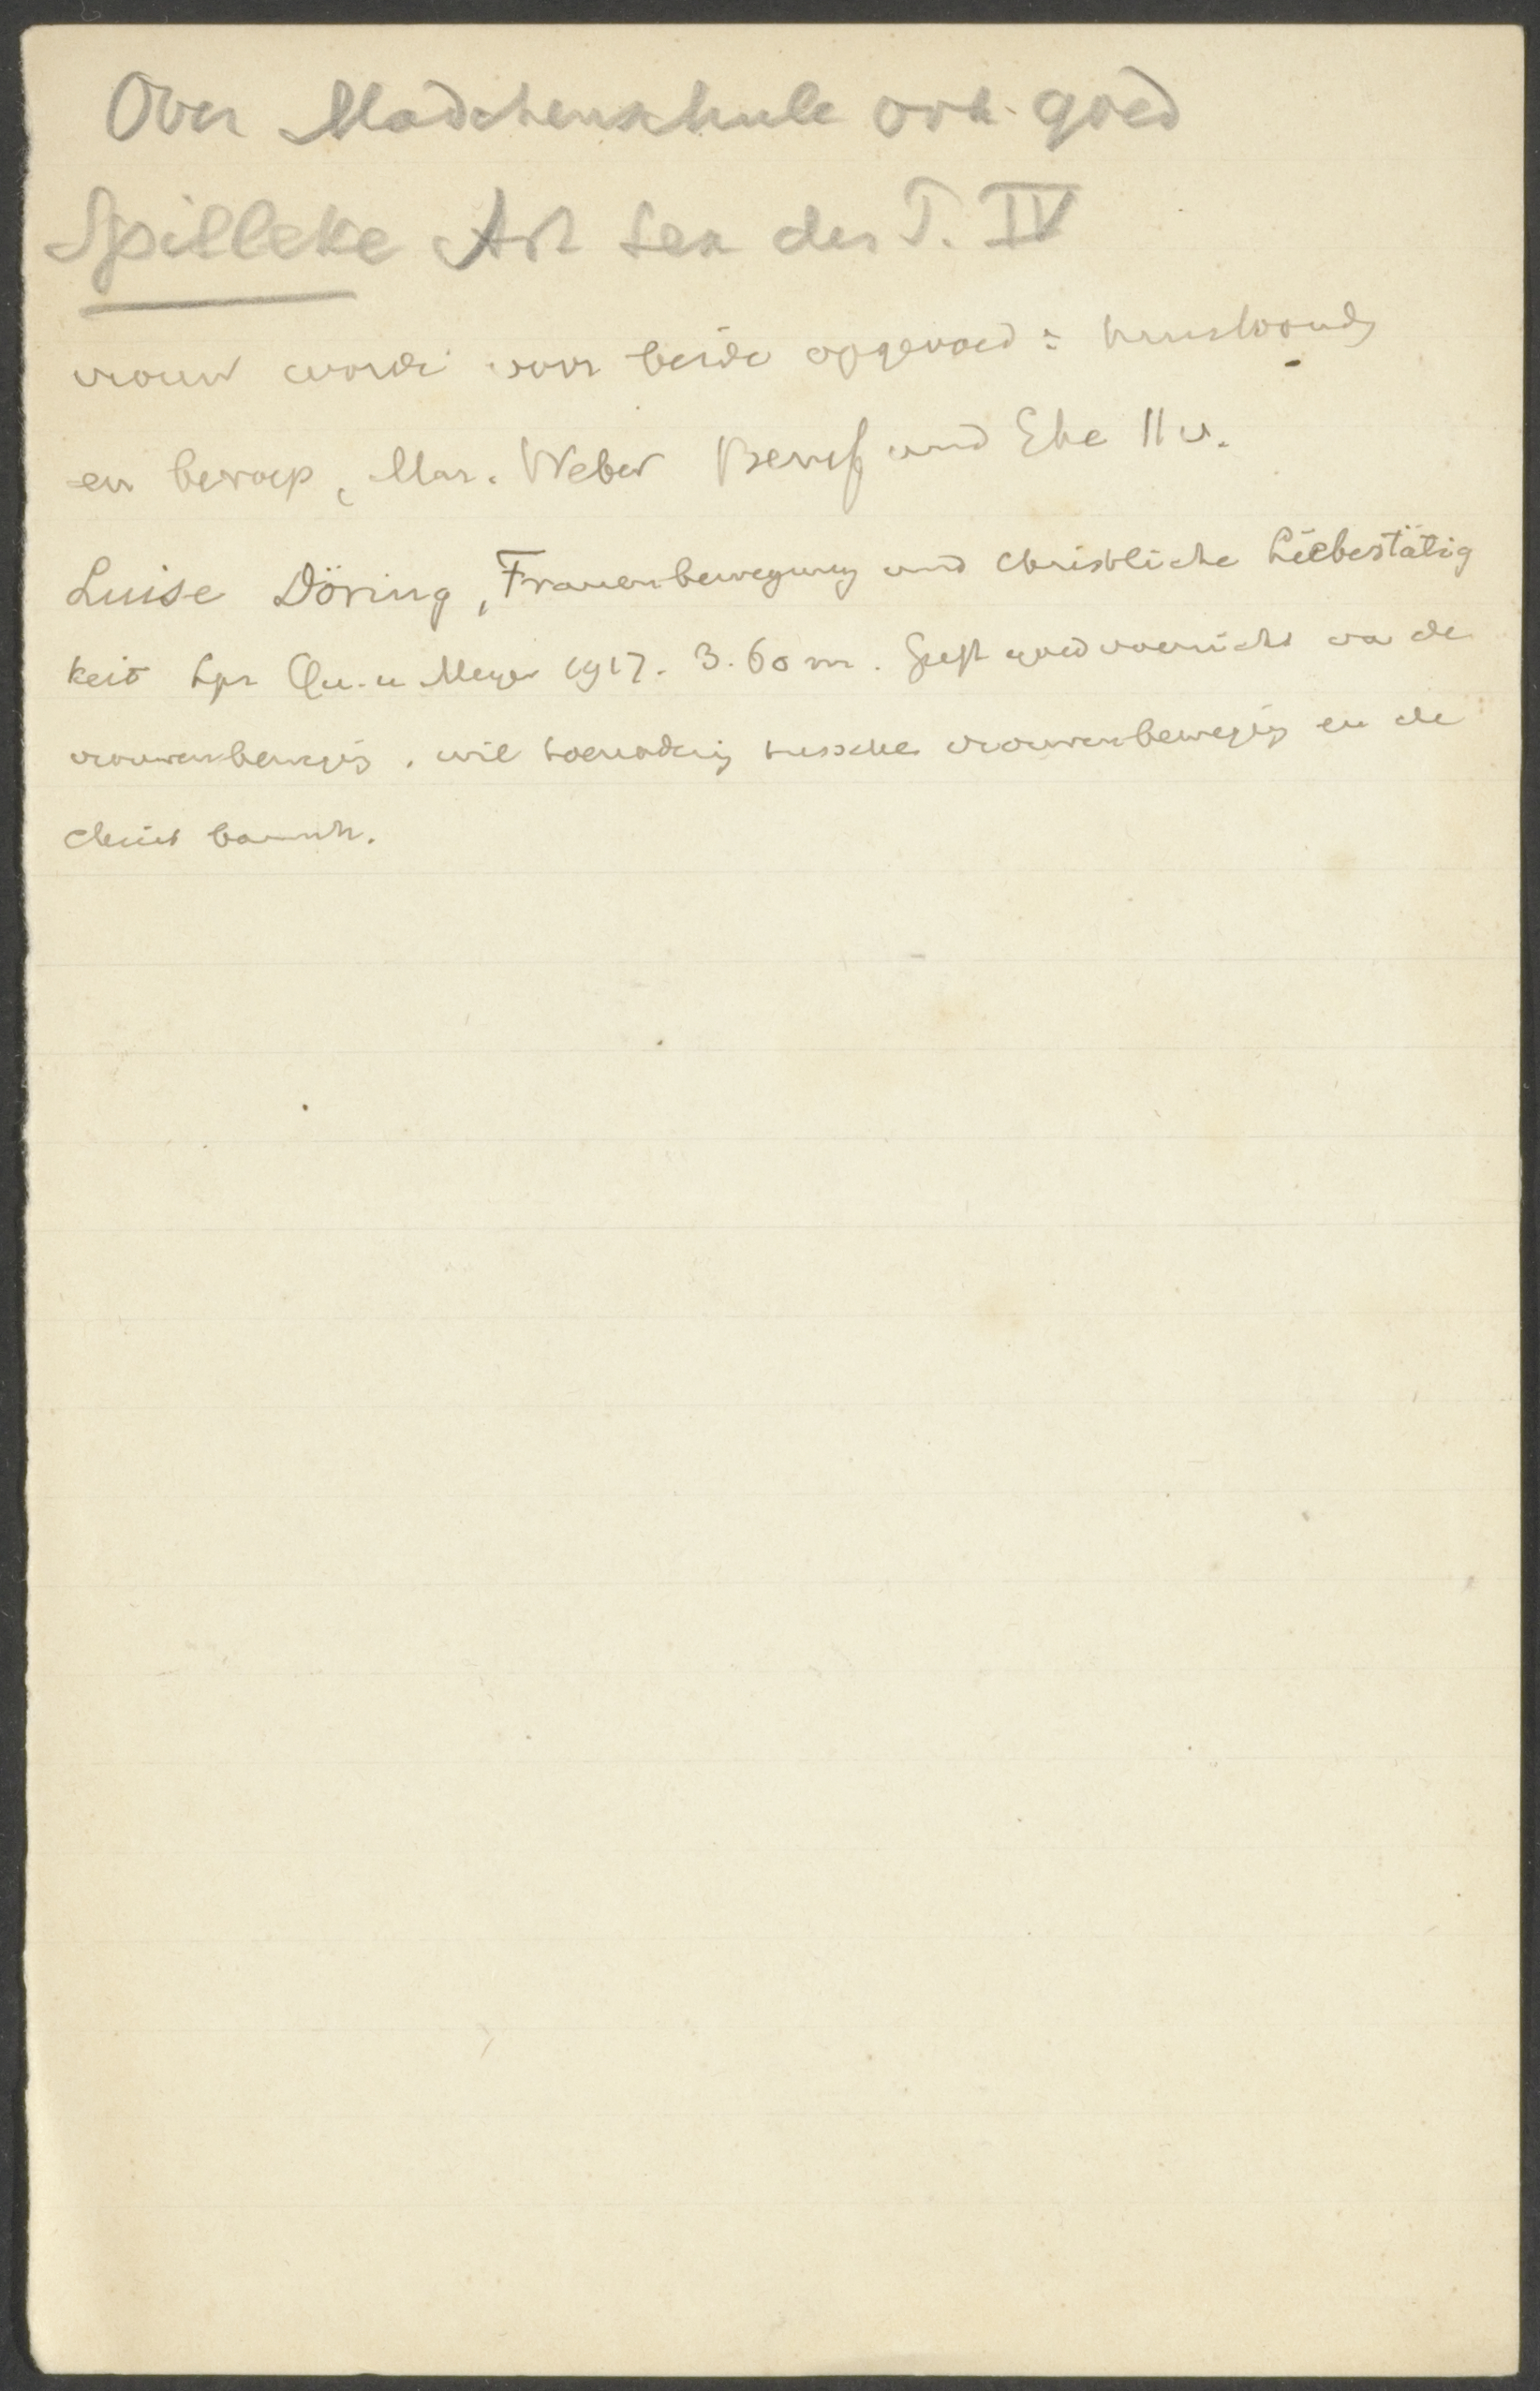 Over Mädchenschule ook goed
Spilleke Art Lex der T. IV
vrouw worde voor beide opgevoed:
en beroep, Mar. Weber Beruf und Ehe 11 v.
Luise Döring, Frauenbewegung und christliche Liebestätig
keit Lpz Qu. u Meyer 1917. 3.60 m. Geeft goed overzicht va de
vrouwenbewegg. wil toenaderig tussche vrouwenbewegig en de